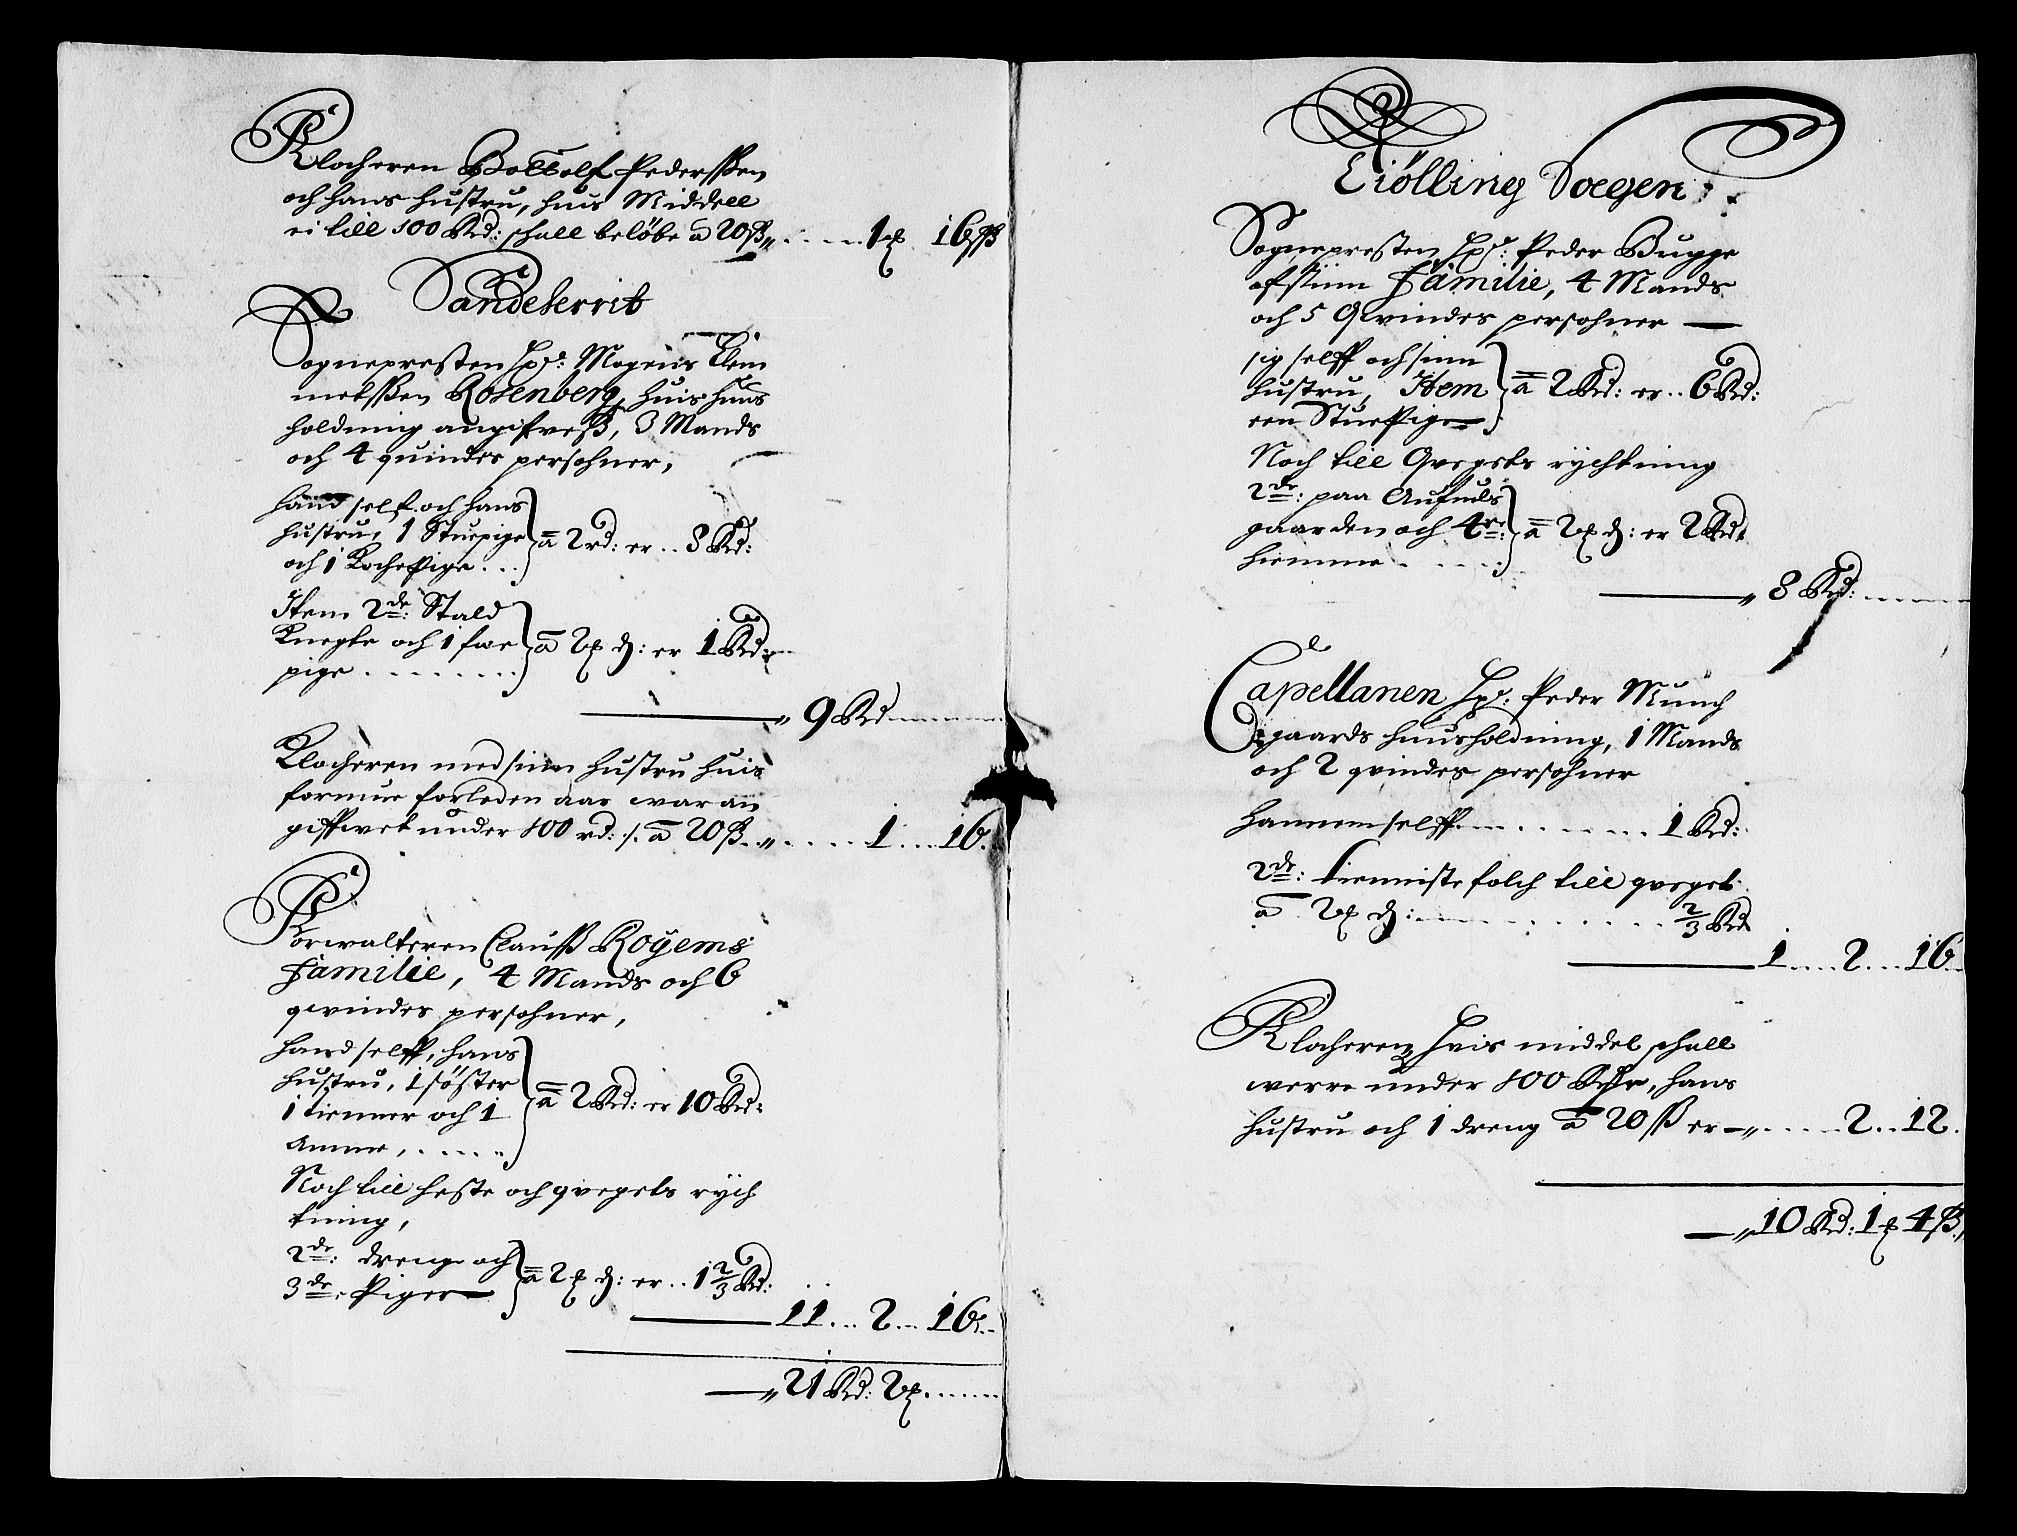 Klocheren Bottolf Pederssen
och hans hustru, huis Middell
ei till 100 Rd: schall beløbe a 20 ß „ ..... 1 ꝣ 16 ß
Sandeherrit
Sognepresten Hr: Mogens Clem
metssen Rosenberg, huis huus
holdning angifves, 3 Mands
och 4 quindes persohner,
hand self och hans
hustru, 1 Stuepige
och 1 Kochepige ...
a 2 rd: er .. 8 Rd:
Item 2de: Stald
Knegte och 1 fæe
pige ........
a 2 ꝣ d: er 1 Rd:
„ 9 Rd
Klocheren med sinn hustru huis
formue forleden aar war an
giffwet under 100 rd: /. a 20 ß .. „ ..... 1 ... 16 .
Forwalteren Clauss Rogems
Familie, 4 Mands och 6
qvindes persohner,
hand selff, hans
hustru, 1 søster
1 tienner och 1
Amme, .....
a 2 Rd: er 10 Rd:
Noch till heste och qvegets rych
tning,
2de: drenge och
3de: Piger
a 2 ꝣ d: er .. 1 2/3 Rd:
11 ... 2 ... 16 ..
„ 21 Rd: 2 ꝣ ......
Tiølling Sogen
Sognepresten Hr: Peder Bugge
af sinn Familie, 4 Mands
och 5 Qvindes persohner
sig selff och sinn
hustru, Item
een Stuepige
a 2 Rd: er .. 6 Rd:
Noch till Qvegets rychtning
2de: paa Aufuels
gaarden och 4re:
hiemme .....
a 2 ꝣ d: er 2 Rd:
„ 8 Rd: ......
Capellanen Hr: Peder Munch
gaards huusholdning, 1 Mands
och 2 qvindes persohner
hannem selff .......... 1 Rd:
2de: tienniste folch till qveget
a 2 ꝣ d: ........... 2/3 Rd
1 .... 2 ... 16 ..
Klocheren, Huis middel schall
werre under 100 Rdr, hans
hustru och 1 dreng a 20 ß er „ ..... 2 .. 12 .
„ 10 Rd: 1 ꝣ 4 ß „